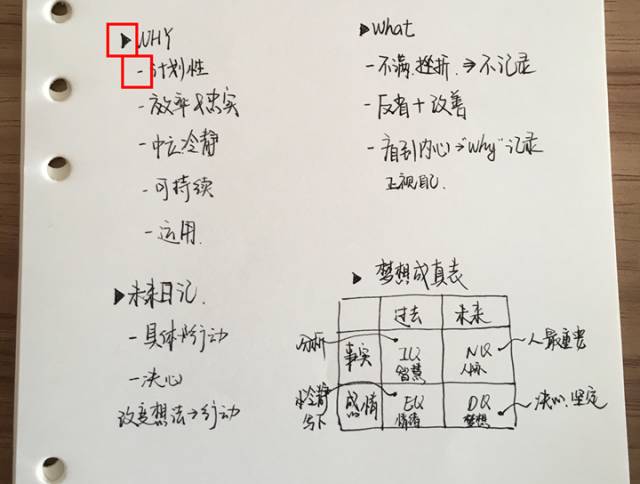 WHY
- 计划性
- 效率&忠实
- 中立冷静
- 可持续
- 运用.
What
- 不满.挫折.→不记录
- 反省+改善
- 看到内心→"Why"记录
正视自己.
未来日记.
- 具体的行动
- 决心
改变想法→行动
梦想成真表
过去 未来
分析 事实 IQ 智慧 NQ 人脉 人最重要
冷静 写下 感情 EQ 情绪 DQ 梦想 决心.坚定